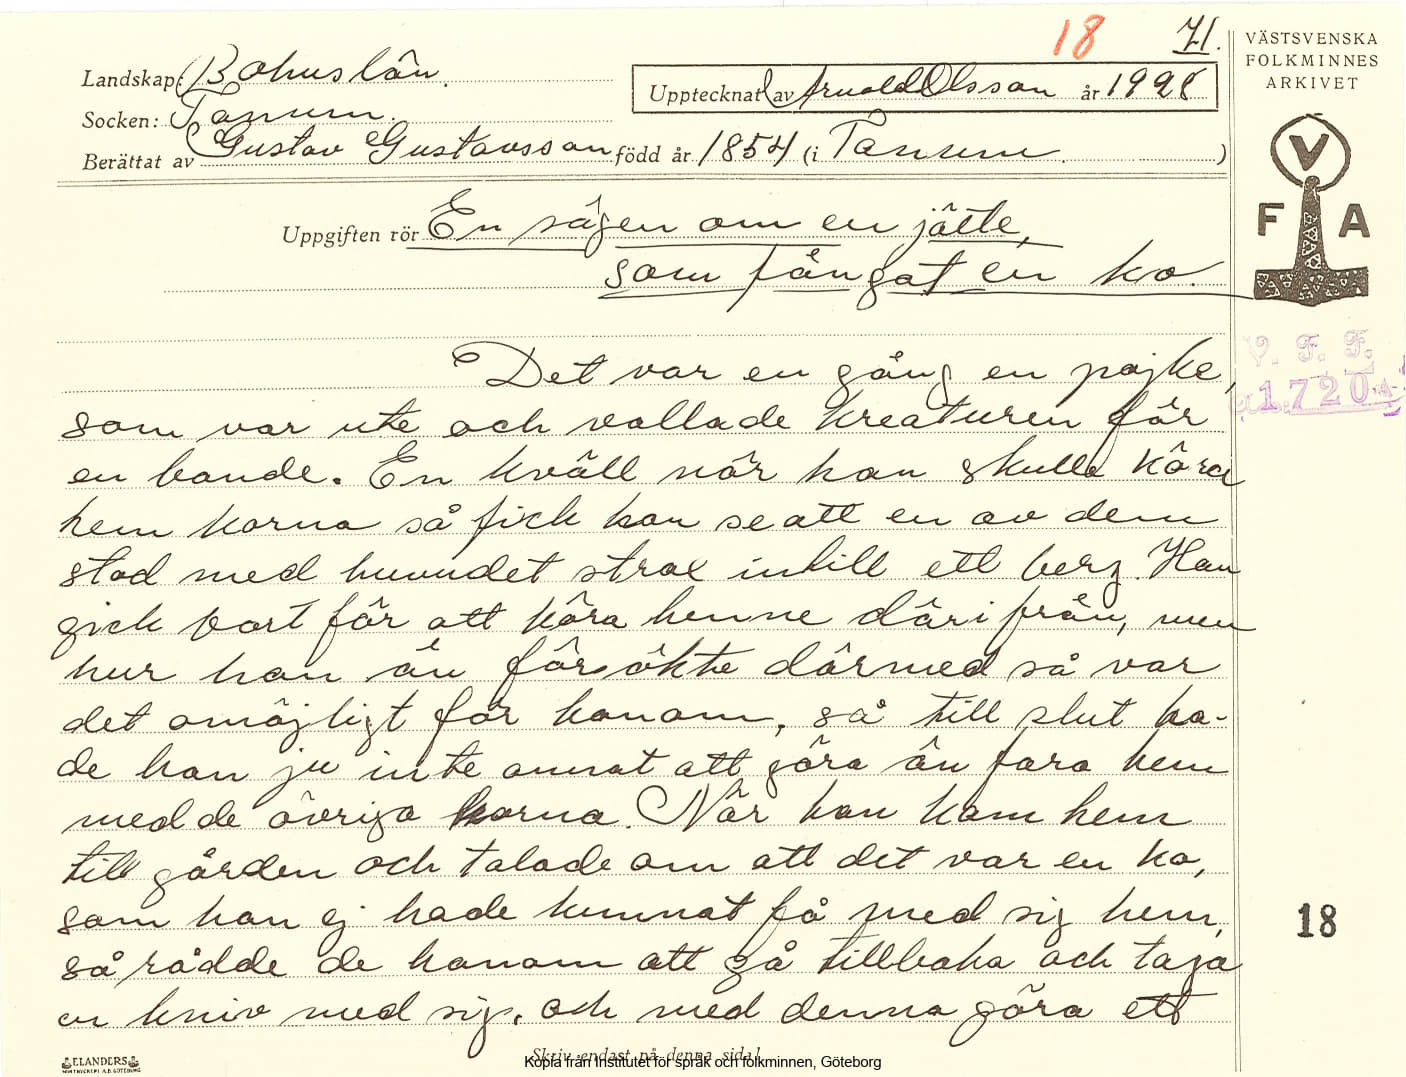 18 71.
VÄSTSVENSKA
FOLKMINNES
ARKIVET
Landskap: Bohuslän.
Upptecknat av Arnold Olsson år 1928
Socken: Tanum.
Berättat av Gustav Gustavsson född år 1854 (i Tanum. )
V
F A
Uppgiften rör En sägen om en jätte,
som fångat en ko.
V. F. F.
1720
Det var en gång en pojke,
som var ute och vallade kreaturen för
en bonde. En kväll när han skulle köra
hem korna så fick han se att en av dem
stod med huvudet strax intill ett berg. Han
gick bort för att köra henne därifrån, men
hur han än försökte därmed så var
det omöjligt för honom, så till slut ha-
de han ju inte annat att göra än fara hem
med de övriga korna. När han kom hem
till gården och talade om att det var en ko,
som han ej hade kunnat få med sig hem,
så rådde de honom att gå tillbaka och taga
en kniv med sig, och med denna göra ett
18
Skriv endast på denna sida!
Kopia från Institutet för språk och folkminnen, Göteborg
ELANDERS